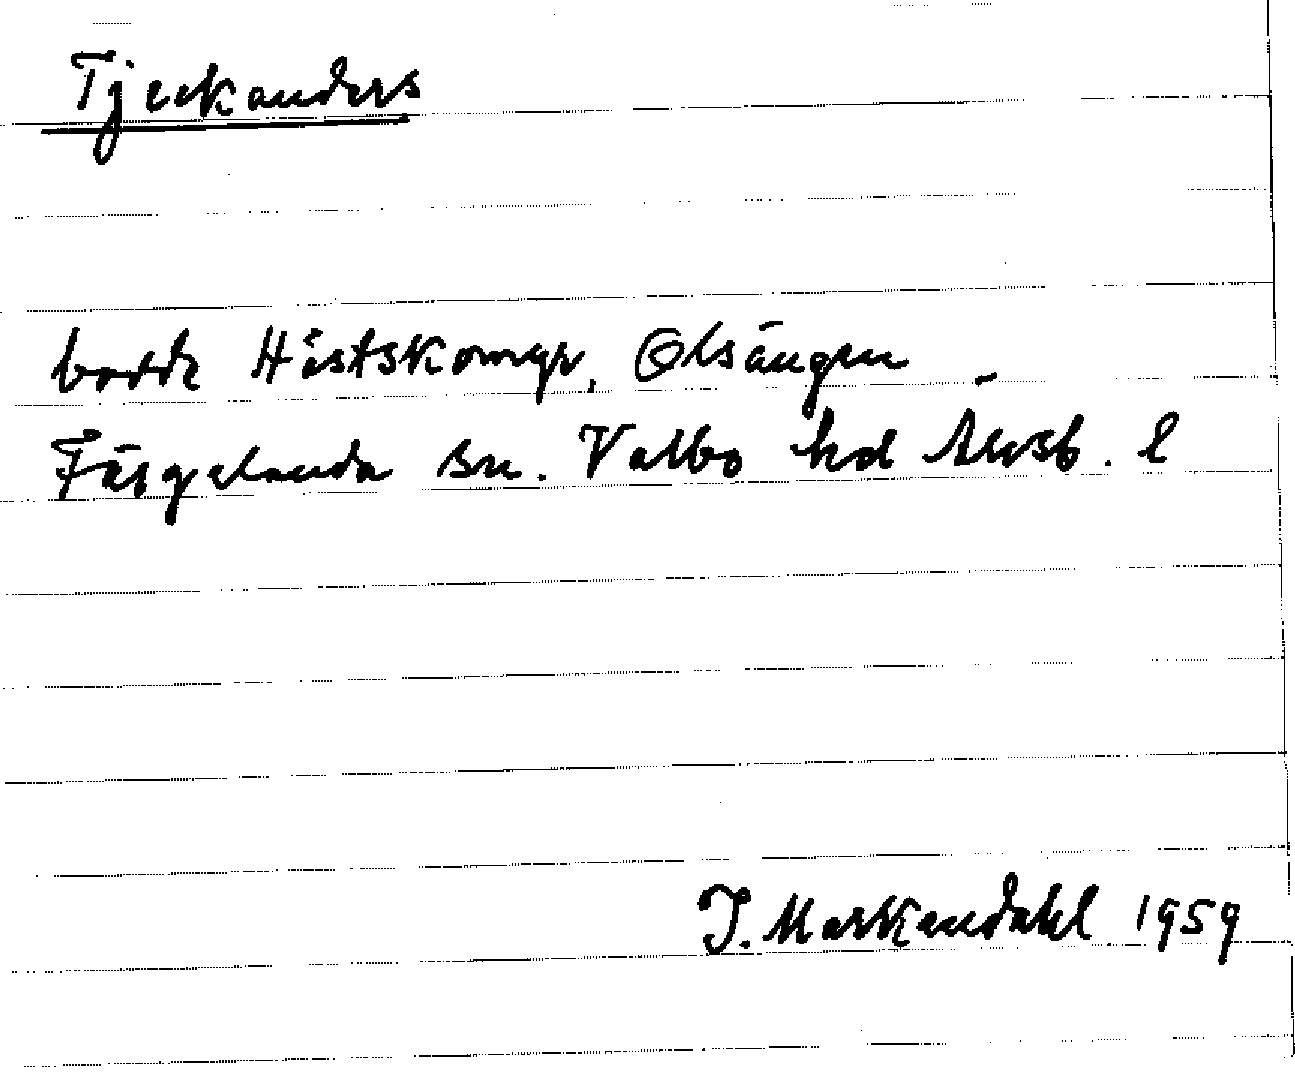 Tjeckanders
bodde Håstskomyr, Olsängen
Färgelanda sn. Valbo hd Älvsb. l
J. Markendahl 1959